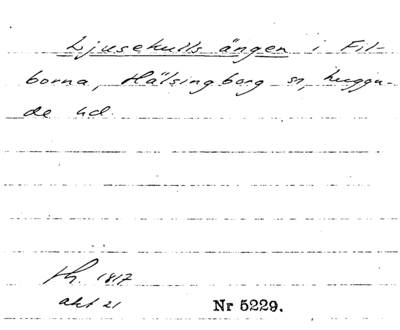 Ljusekulls ängen i Fil-
borna, Hälsingborg sn, Luggu-
de hd.
th. 1817
akt 21
Nr 5229.